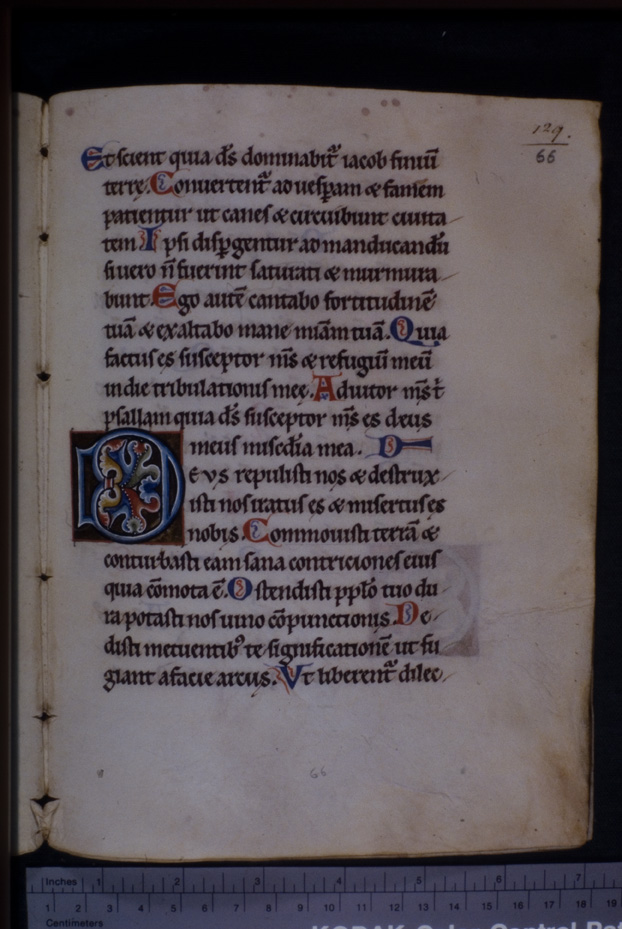 129.
66
Et scient quia ds̄ dominabit᷑ iacob finiū
terrę. Conuertent᷑ ad uesꝑam & famem
patientur ut canes & circuibunt ciuita
tem Ipsi disꝑgentur ad manducandū
si uero n̄ fuerint saturati & murmura
bunt. Ego autē cantabo fortitudinē
tuā & exaltabo mane mīam tuā. Quia
factus es susceptor ms̄ & refugiū meū
in die tribulationis meę. Adiutor ms̄ t̄
psallam quia ds̄ susceptor ms̄ es deus
meus misc̄dia mea.
DEVS repulisti nos & destrux
isti nos iratus es & misertus es
nobis. Commouisti terrā &
conturbasti eam sana contriciones eius
quia cōmota ē. Ostendisti pplo᷑ tuo du
ra potasti nos uino cōpunctionis. De
disti metuentibꝰ te significationē ut fu
giant a facie arcus. Vt liberent᷑ dilec
66
Inches 1 2 3 4 5 6 7
1 2 3 4 5 6 7 8 9 10 11 12 13 14 15 16 17 18 19
Centimeters